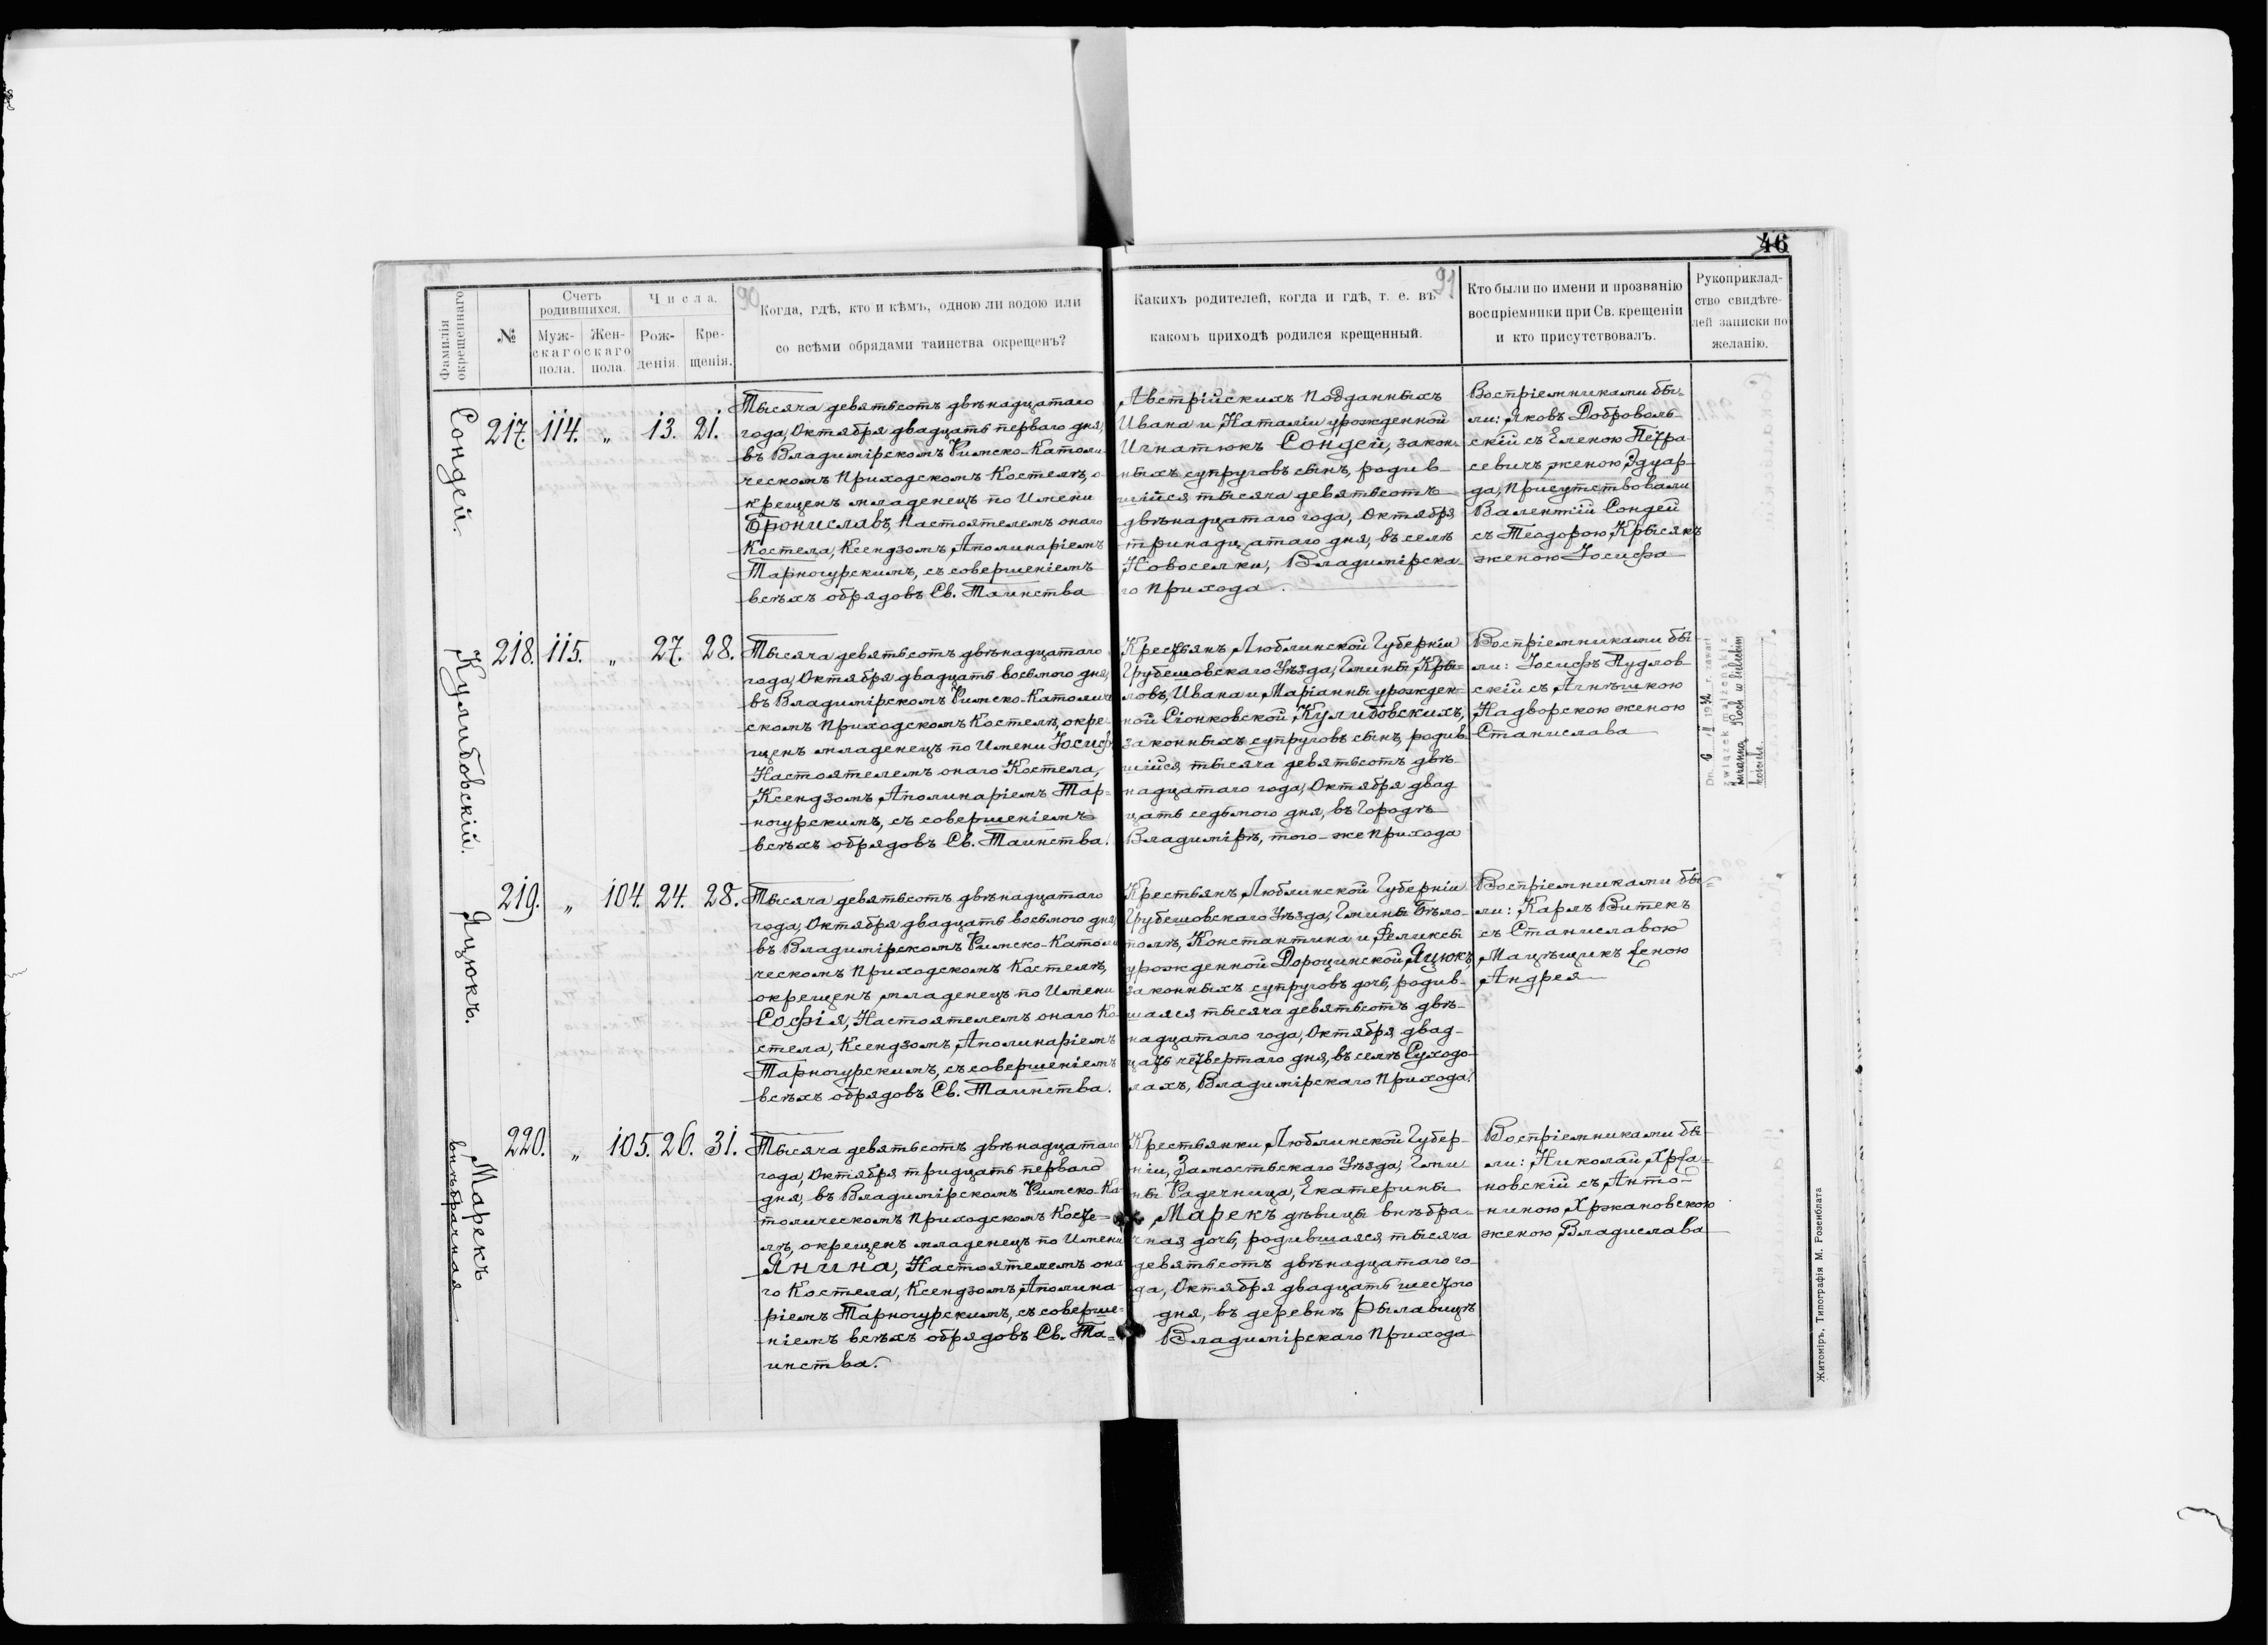 46
90
91
Фамилія окрещеннаго.
№
Счетъ родившихся.
Муж-
скаго
пола.
Жен-
скаго
пола.
Числа.
Рож-
денія.
Кре-
щенія.
Когда, гдѣ, кто и кѣмъ, одною ли водою или
со всѣми обрядами таинства окрещенъ?
Какихъ родителей, когда и гдѣ, т. е. въ
какомъ приходѣ родился крещенный.
Кто были по имени и прозванію
воспріемники при Св. крещеніи
и кто присутствовалъ.
Рукоприклад-
ство свидѣте-
лей записки по
желанію.
Сондей.
217. 114. „ 13. 21.
Тысяча девятьсотъ двѣнадцатаго
года, Октября двадцать перваго дня,
въ Владимірскомъ Римско-Католи-
ческомъ Приходскомъ Костелѣ, о-
крещенъ младенецъ по Имени
Брониславъ, Настоятелемъ онаго
Костела, Ксендзомъ Аполинаріемъ
Тарногурскимъ, съ совершеніемъ
всѣхъ обрядовъ Св. Таинства
Австрійскихъ Подданныхъ
Ивана и Наталіи урожденной
Игнатюкъ Сондей, закон-
ныхъ супруговъ сынъ, родив-
шійся тысяча девятьсотъ
двѣнадцатаго года, Октября
тринадцатаго дня, въ селѣ
Новоселки, Владимірска-
го Прихода.
Воспріемниками бы-
ли: Яковъ Доброволь-
скій съ Еленою Петра-
севичъ женою Эдуар-
да, Присутствовали
Валентій Сондей
съ Теодорою Крысякъ
женою Іосифа
Кулибовскій.
218. 115. „ 27. 28.
Тысяча девятьсотъ двѣнадцатаго
года, Октября двадцать восьмого дня,
въ Владимірскомъ Римско-Католиче
скомъ Приходскомъ Костелѣ, окре-
щенъ младенецъ по Имени Іосифъ
Настоятелемъ онаго Костела,
Ксендзомъ Аполинаріемъ Тар-
ногурскимъ, съ совершеніемъ
всѣхъ обрядовъ Св. Таинства.
Крестьянъ Люблинской Губерніи
Грубешовскаго Уѣзда, Гмины Кры-
ловъ, Ивана и Маріанны урожден-
ной Сіонковской Кулибовскихъ,
законныхъ супруговъ сынъ, родив
шійся тысяча девятьсотъ двѣ-
надцатаго года, Октября двад
цать седьмого дня, въ Городѣ
Владимірѣ, того-же Прихода
Воспріемниками бы-
ли: Іосифъ Пудлов-
скій съ Агнѣшкою
Надворскою женою
Станислава
Dn. 6 II 1932 r. zawarł
związek małżeński z
kościele.
Яцюкъ.
219. „ 104. 24. 28.
Тысяча девятьсотъ двѣнадцатаго
года, Октября двадцать восьмого дня,
въ Владимірскомъ Римско-Католи
ческомъ Приходскомъ Костелѣ,
окрещенъ младенецъ по Имени
Софія, Настоятелемъ онаго Ко-
стела, Ксендзомъ Аполинаріемъ
Тарногурскимъ, съ совершеніемъ
всѣхъ обрядовъ Св. Таинства.
Крестьянъ Люблинской Губерніи
Грубешовскаго Уѣзда, Гмины Бѣло-
полѣ, Константина и Феликсы
урожденной Дороцинской Яцюкъ,
законныхъ супруговъ дочь, родив-
шаяся тысяча девятьсотъ двѣ-
надцатаго года, Октября двад-
цать четвертаго дня, въ селѣ Суходо-
лахъ, Владимірскаго Прихода.
Воспріемниками бы-
ли: Карлъ Витекъ
съ Станиславою
Мацѣщикъ женою
Андрея
Марекъ
внѣбрачная
220. „ 105. 26. 31.
Тысяча девятьсотъ двѣнадцатаго
года, Октября тридцать перваго
дня, въ Владимірскомъ Римско-Ка-
толическомъ Приходскомъ Косте-
лѣ, окрещенъ младенецъ по Имени
Янина, Настоятелемъ она
го Костела, Ксендзомъ Аполина-
ріемъ Тарногурскимъ, съ соверше-
ніемъ всѣхъ обрядовъ Св. Та-
инства.
Крестьянки Люблинской Губер-
ніи, Замостьскаго Уѣзда, Гми
ны Радечница, Екатерины
Марекъ дѣвицы внѣбра-
чная дочь, родившаяся тысяча
девятьсотъ двѣнадцатаго го-
да, Октября двадцать шестого
дня, въ деревнѣ Рылавицѣ
Владимірскаго Прихода
Воспріемниками бы-
ли: Николай Хржа-
новскій съ Анто-
ниною Хржановскою
женою Владислава
Житоміръ, Типографія М. Розенблата